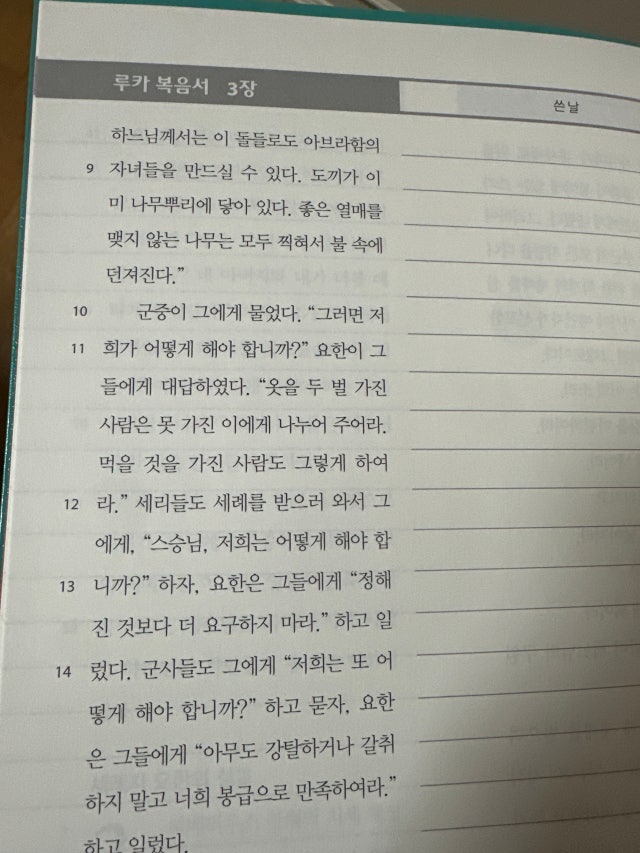 루카 복음서 3장
쓴날
하느님께서는 이 돌들로도 아브라함의
9 자녀들을 만드실 수 있다. 도끼가 이
미 나무뿌리에 닿아 있다. 좋은 열매를
맺지 않는 나무는 모두 찍혀서 불 속에
던져진다.”
10 군중이 그에게 물었다. “그러면 저
11 희가 어떻게 해야 합니까?” 요한이 그
들에게 대답하였다. “옷을 두 벌 가진
사람은 못 가진 이에게 나누어 주어라.
먹을 것을 가진 사람도 그렇게 하여
12 라.” 세리들도 세례를 받으러 와서 그
에게, “스승님, 저희는 어떻게 해야 합
13 니까?” 하자, 요한은 그들에게 “정해
진 것보다 더 요구하지 마라.” 하고 일
14 렀다. 군사들도 그에게 “저희는 또 어
떻게 해야 합니까?” 하고 묻자, 요한
은 그들에게 “아무도 강탈하거나 갈취
하지 말고 너희 봉급으로 만족하여라.”
하고 일렀다.